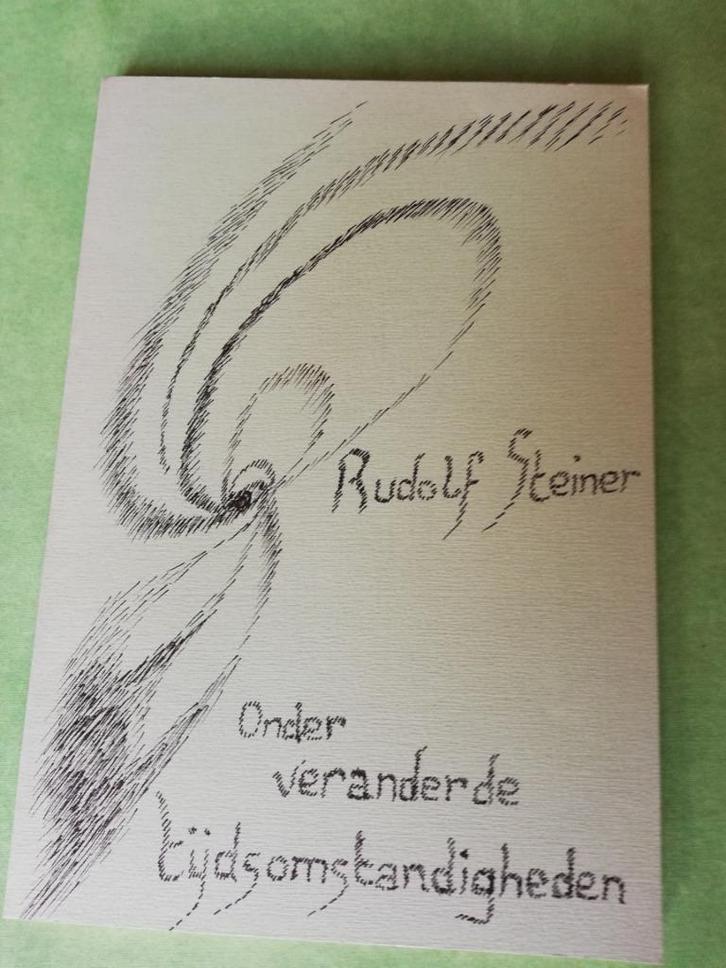 Rudolf Steiner
Onder
veranderde
tijdsomstandigheden